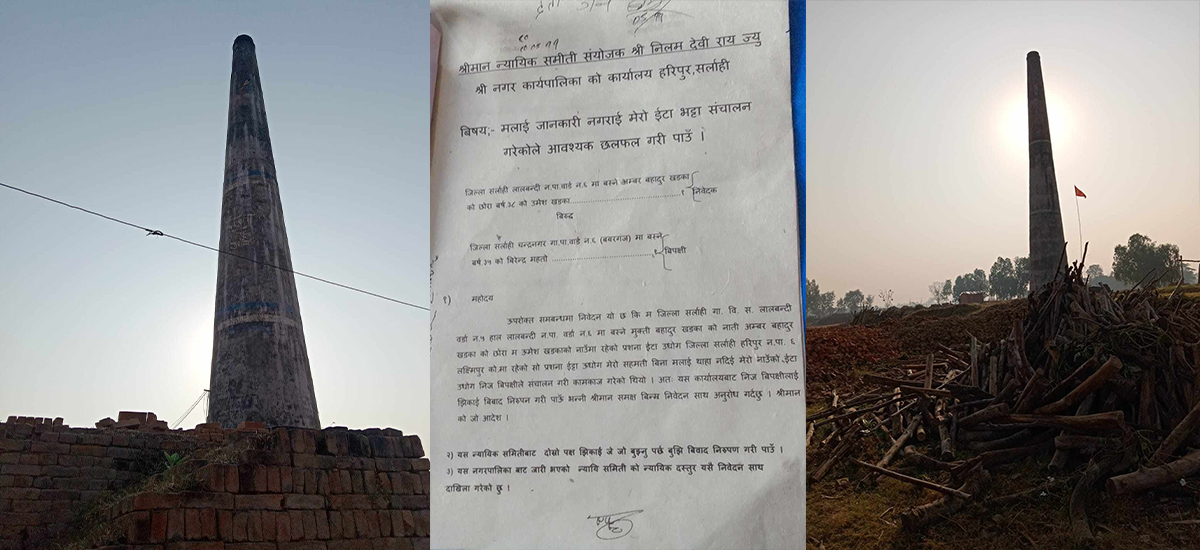 श्रीमान न्यायिक समीती संयोजक श्री निलम देवी राय ज्यु
श्री नगर कार्यपालिका को कार्यालय हरिपुर,सर्लाही
बिषय;- मलाई जानकारी नगराई मेरो ईटा भट्टा संचालन
गरेकोले आवश्यक छलफल गरी पाउँ ।
जिल्ला सर्लाही लालबन्दी न.पा.वार्ड न.६ मा बस्ने अम्बर बहादुर खडका
को छोरा बर्ष.२८ को उमेश खडका.............................१ निवेदक
बिरुद्ध
जिल्ला सर्लाही चन्द्रनगर गा.पा.वार्ड न.६ (बबरगज) मा बस्ने
बर्ष.३५ को बिरेन्द्र महतो ..............................१ बिपक्षी
१) महोदय
उपरोक्त समबन्धमा निवेदन यो छ कि म जिल्ला सर्लाही गा. वि. स. लालबन्दी
वडाँ न.५ हाल लालबन्दी न.पा. वडाँ न.६ मा बस्ने मुक्ती बहादुर खडका को नाती अम्बर बहादुर
खडका को छोरा म उमेश खडकाको नाउँमा रहेको प्रशना ईटा उधोग जिल्ला सर्लाही हरिपुर न.पा. ६
लक्ष्मिपुर को.मा रहेको सो प्रशना ईट्टा उधोग मेरो सहमती बिना मलाई थाहा नदिई मेरो नाउँको ,ईटा
उधोग निज बिपक्षीले संचालन गरी कामकाज गरेको थियो । अतः यस कार्यालयबाट निज बिपक्षीलाई
झिकाई बिबाद निरुपन गरी पाऊँ भन्नी श्रीमान समक्ष बिन्म्र निवेदन साथ अनुरोध गर्दछु । श्रीमान
को जो आदेश ।
२) यस न्यायिक समितीबाट दोस्रो पक्ष झिकाई जे जो बुझ्नु पर्छ बुझि बिवाद निरुपण गरी पाउँ ।
३) यस नगरपालिका बाट जारी भएको न्यायि समिती को न्यायिक दस्तुर यसै निवेदन साथ
दाखिला गरेको छु ।